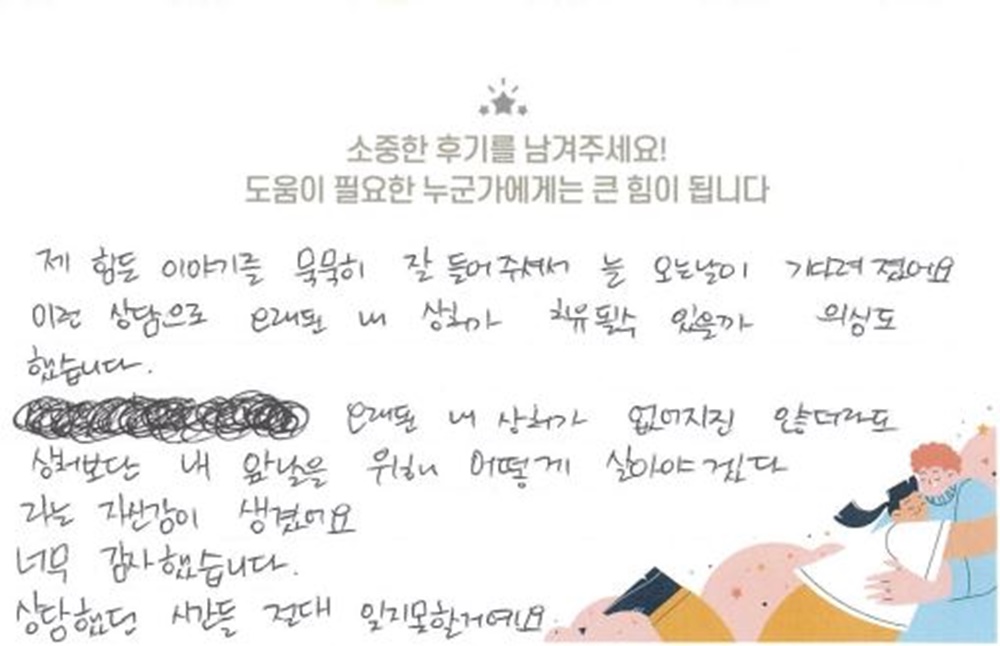 소중한 후기를 남겨주세요!
도움이 필요한 누군가에게는 큰 힘이 됩니다
제 힘든 이야기를 묵묵히 잘 들어주셔서 늘 오는날이 기다려졌어요
이런 상담으로 오래된 내 상처가 치유될수 있을까 의심도
했습니다.
오래된 내 상처가 없어지진 않더라도
상처보단 내 앞날을 위해 어떻게 살아야겠다
라는 자신감이 생겼어요
너무 감사했습니다.
상담했던 시간들 절대 잊지못할거예요